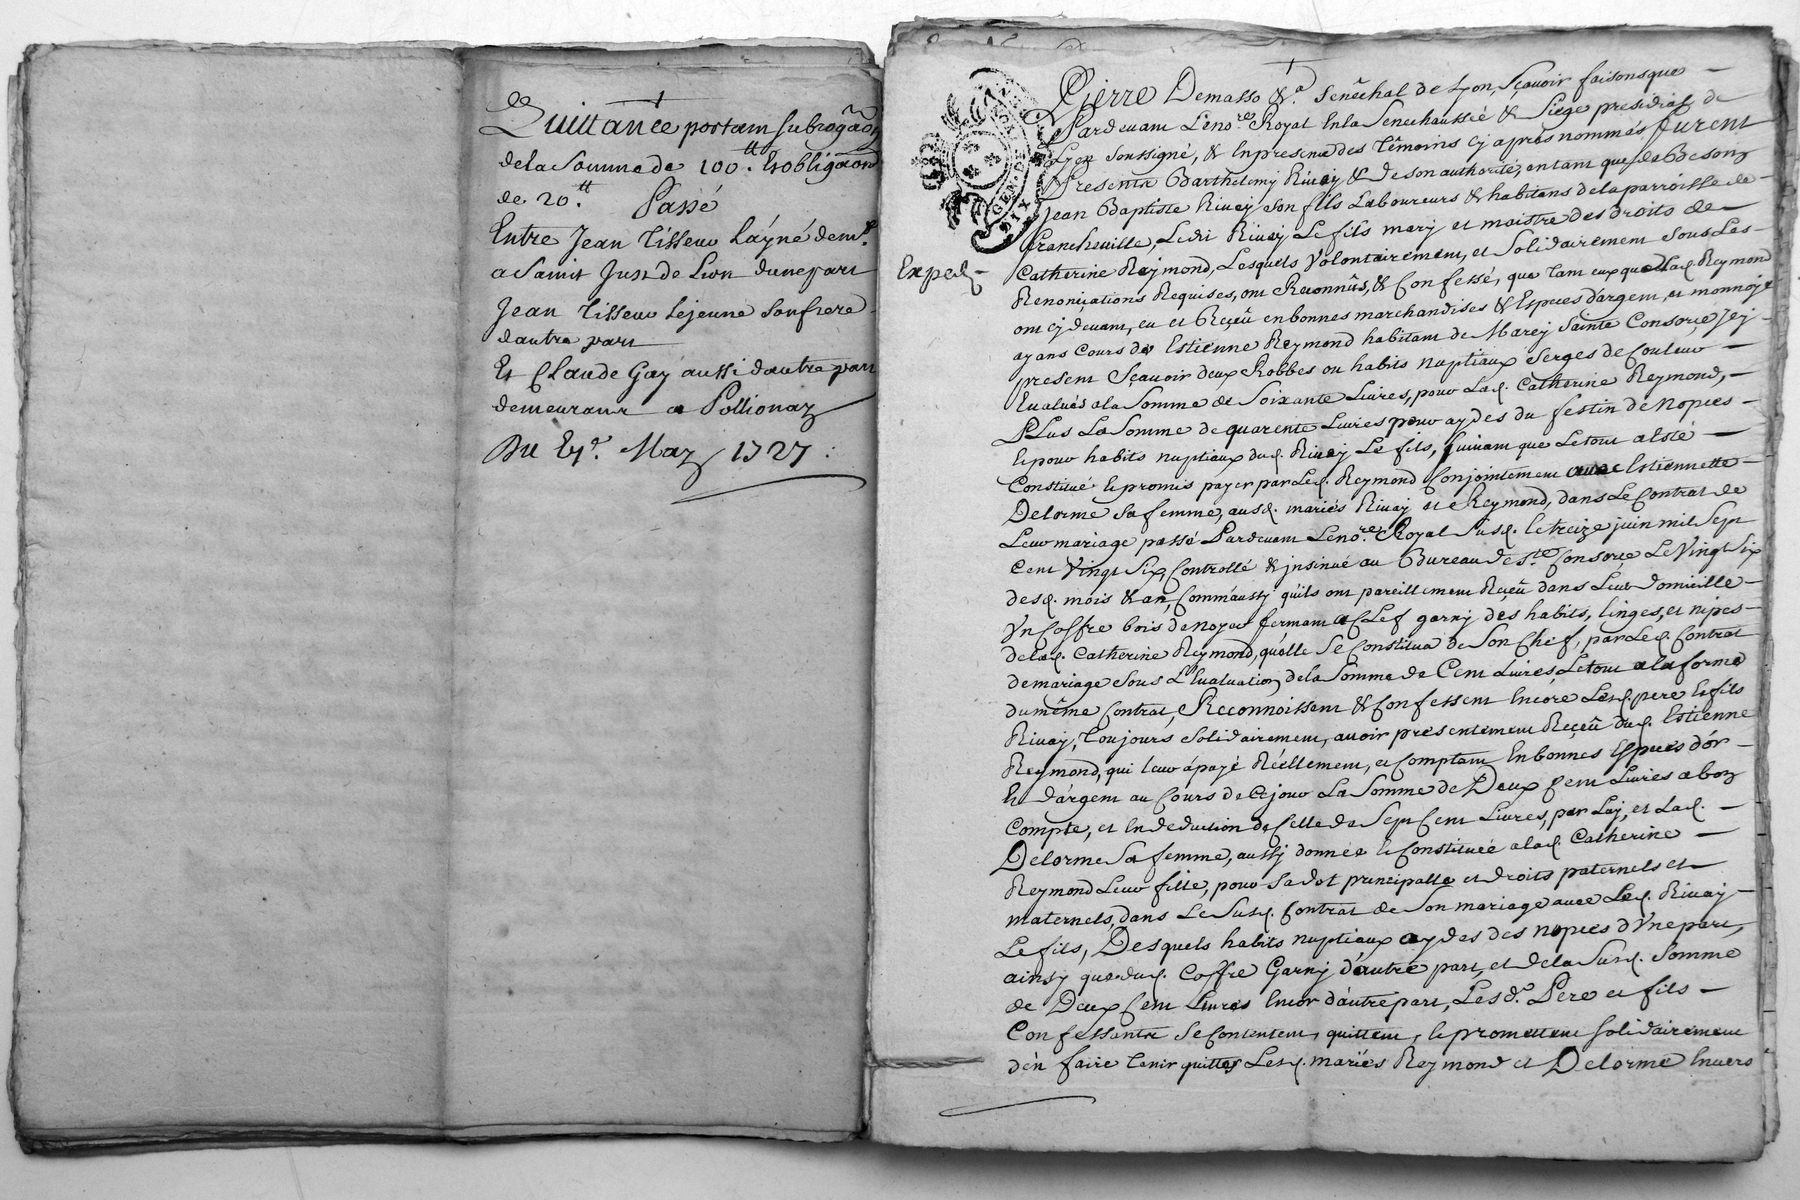 Quittance portant subrogaon
de la Somme de 100.tt Et obligaon
de 20.tt Passé
Entre Jean Tisseur Layné dem.t
a Saint Just de Lion dune part
Jean Tisseur Lejeune Son frere
dautre part
Et Claude Gay aussi dautre part
demeurant a Pollionay
Du Ey.e May 1727.
Exped.
GEN. DE
DIX
Pierre Demasso &.a Senêchal de Lyon, Sçavoir faisons que
Pardevant Le no.re Royal En la Senechaussée & Siege presidial de
Lyon soussigné, & En presence des Témoins cy après nommés, furent
Presents Barthelemy Rivay & de son authorité, en tant que de Besoin
Jean Baptiste Rivay son fils Laboureurs & habitans de la parroisse de
francheville, Ledit Rivay Le fils mary et maistre des droits de
Catherine Reymond, Lesquels volontairement, et Solidairement sous Les
Renonciations Requises, ont Reconnûs, & Confessé, que tant eux que Lad. Reymond
ont cy devant, eu et Reçeû en bonnes marchandises & Especes d'argent, et monnoye
ayans Cours de Estienne Reymond habitant de Marcy Sainte Consorce Icy
present Sçavoir deux Robbes ou habits nuptiaux Serges de Couleur
Evalués a la Somme de Soixante Livres, pour Lad. Catherine Reymond,
Plus La Somme de quarente Livres pour aydes du festin de Nopces
Et pour habits nuptiaux dud. Rivay Le fils, suivant que Le tout a Esté
Constitué Et promis payer par Led. Reymond Conjointement avec Estiennette
Delorme Sa femme, ausd. mariés Rivay et Reymond, dans Le Contrat de
Leur mariage passé Pardevant Le no.re Royal Susd. Le treize juin mil Sept
Cent Vingt Six, Controllé & jnsinué au Bureau de S.te Consorce Le Vingt Six
desd. mois & an, Comm'aussy qu'ils ont pareillement Reçeû dans Leur domicille
Un Coffre bois de Noyer fermant a Clef garny des habits, linges, et nipes
de lad. Catherine Reymond, qu'elle Se Constitua de Son Chef, par Led. Contrat
de mariage sous L'Evaluation de la Somme de Cent Livres, Le tout a la forme
du même Contrat, Reconnoissent & Confessent Encore Lesd. pere Et fils
Rivay, Toujours Solidairement, avoir presentement Reçeû dud. Estienne
Reymond, qui leur a payé Réellement, et Comptant En bonnes Especes d'or
Et d'argent au Cours de Ce jour La Somme de Deux Cent Livres a bon
Compte, et En deduction de Celle de Sept Cent Livres, par Luy, et Lad.
Delorme Sa femme, aussy donnée Et Constituée a lad. Catherine
Reymond Leur fille, pour Sa dot principalle et droits paternels et
maternels, dans Le Susd. Contrat de Son mariage avec Led. Rivay
Le fils, Desquels habits nuptiaux aydes des nopces d'Une part,
ainsy que dud. Coffre Garny d'autre part, et de la Susd. Somme
de Deux Cent Livres Encor d'autre part, Lesd.s Pere et fils
Confessants Se Contentent, quittent, Et promettent Solidairement
d'en faire tenir quittes Lesd. mariés Reymond et Delorme Envers